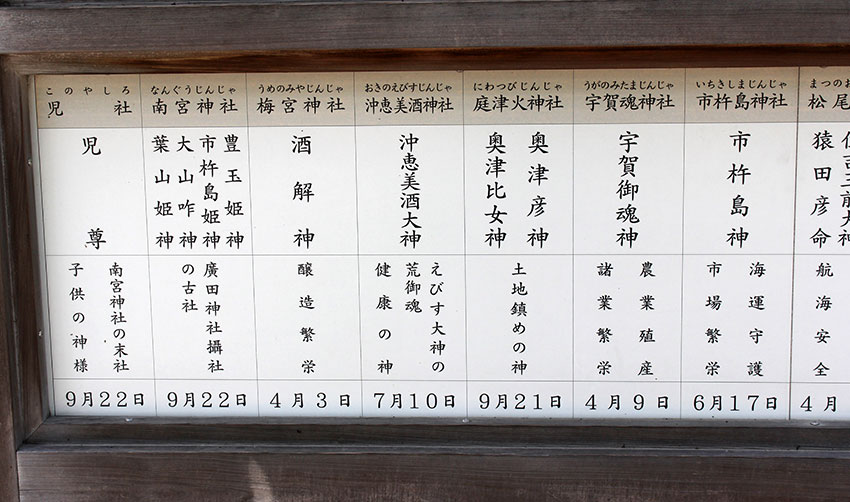 まつのお
松尾
猿田彦命
航海安全
4月
いちきしまじんじゃ
市杵島神社
市杵島神
海運守護
市場繁栄
6月17日
うがのみたまじんじゃ
宇賀魂神社
宇賀御魂神
農業殖産
諸業繁栄
4月9日
にわつびじんじゃ
庭津火神社
奥津彦神
奥津比女神
土地鎮めの神
9月21日
おきのえびすじんじゃ
沖恵美酒神社
沖恵美酒大神
えびす大神の
荒御魂
健康の神
7月10日
うめのみやじんじゃ
梅宮神社
酒解神
醸造繁栄
4月3日
なんぐうじんじゃ
南宮神社
豊玉姫神
市杵島姫神
大山咋神
葉山姫神
廣田神社攝社
の古社
9月22日
このやしろ
児社
児尊
南宮神社の末社
子供の神様
9月22日